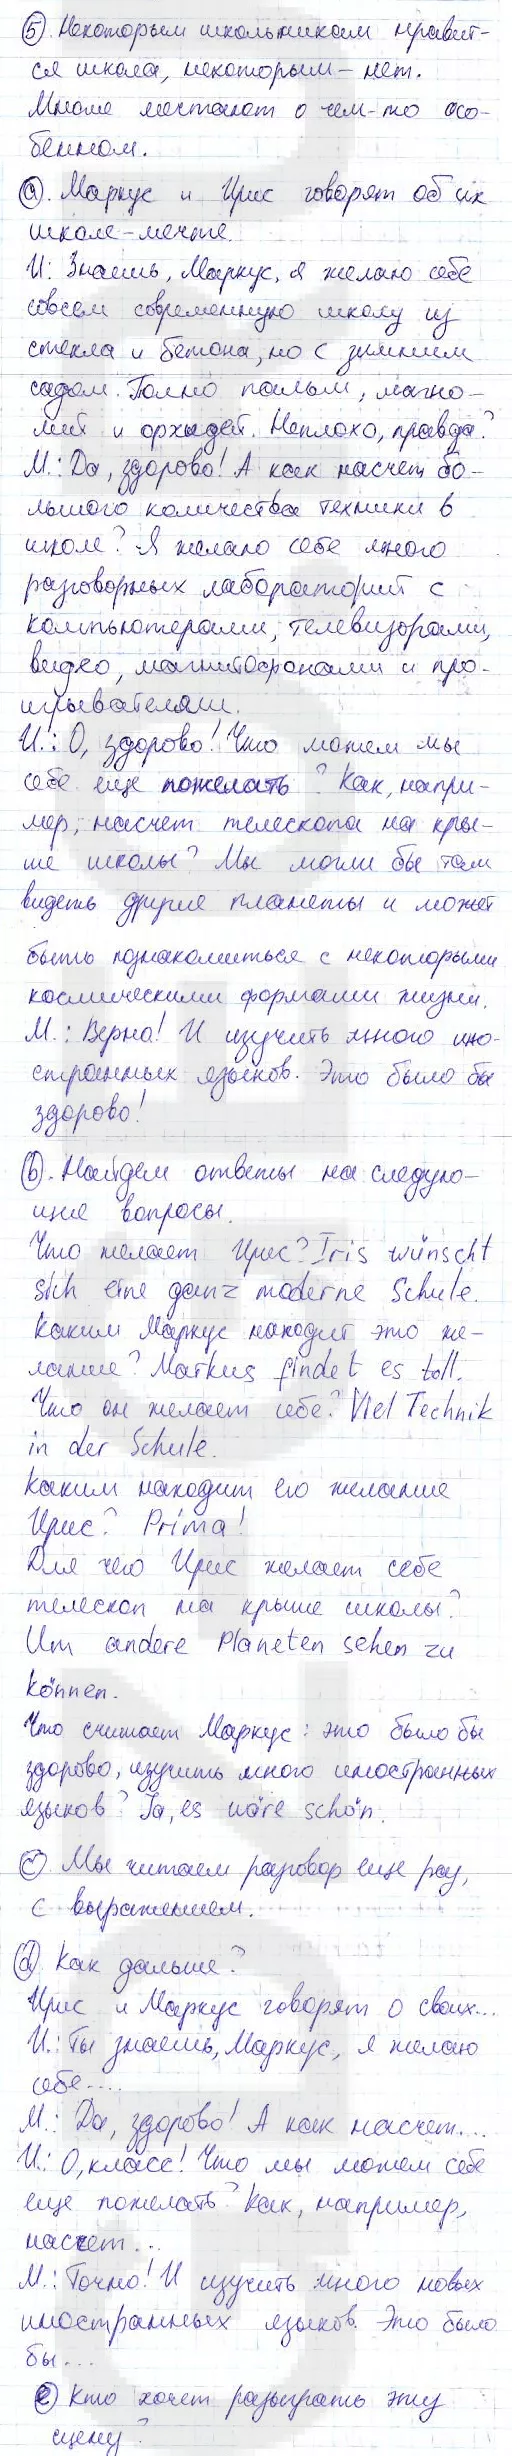 5. Некоторым школьникам нравит-
ся школа, некоторым – нет.
Многие мечтают о чем-то осо-
бенном.
а). Маркус и Ирис говорят об их
школе-мечте.
И: Знаешь, Маркус, я желаю себе
совсем современную школу из
стекла и бетона, но с зимним
садом. Полно пальм, магно-
лий и орхидей. Неплохо, правда?
М.: Да, здорово! А как насчет бо-
льшого количества техники в
школе? Я желаю себе много
разговорных лабораторий с
компьютерами, телевизорами,
видео, магнитофонами и про-
игрывателями.
И.: О, здорово! Что можем мы
себе еще пожелать? Как, напри-
мер, насчет телескопа на кры-
ше школы? Мы могли бы там
видеть другие планеты и может
быть познакомиться с некоторыми
космическими формами жизни.
М.: Верно! И изучить много ино-
странных языков. Это было бы
здорово!
b). Найдем ответы на следую-
щие вопросы.
Что желает Ирис? Iris wünscht
sich eine ganz moderne Schule.
Каким Маркус находит это же-
лание? Markus findet es toll.
Что он желает себе? Viel Technik
in der Schule.
Каким находит его желание
Ирис? Prima!
Для чего Ирис желает себе
телескоп на крыше школы?
Um andere Planeten sehen zu
können.
Что считает Маркус: это было бы
здорово, изучить много иностранных
языков? Ja, es wäre schön.
c). Мы читаем разговор еще раз,
с выражением.
d). Как дальше?
Ирис и Маркус говорят о своих...
И.: Ты знаешь, Маркус, я желаю
себе....
М.: Да, здорово! А как насчет....
И.: О, класс! Что мы можем себе
еще пожелать? Как, например,
насчет...
М.: Точно! И изучить много новых
иностранных языков. Это было
бы...
e) Кто хочет разыграть эту
сцену?